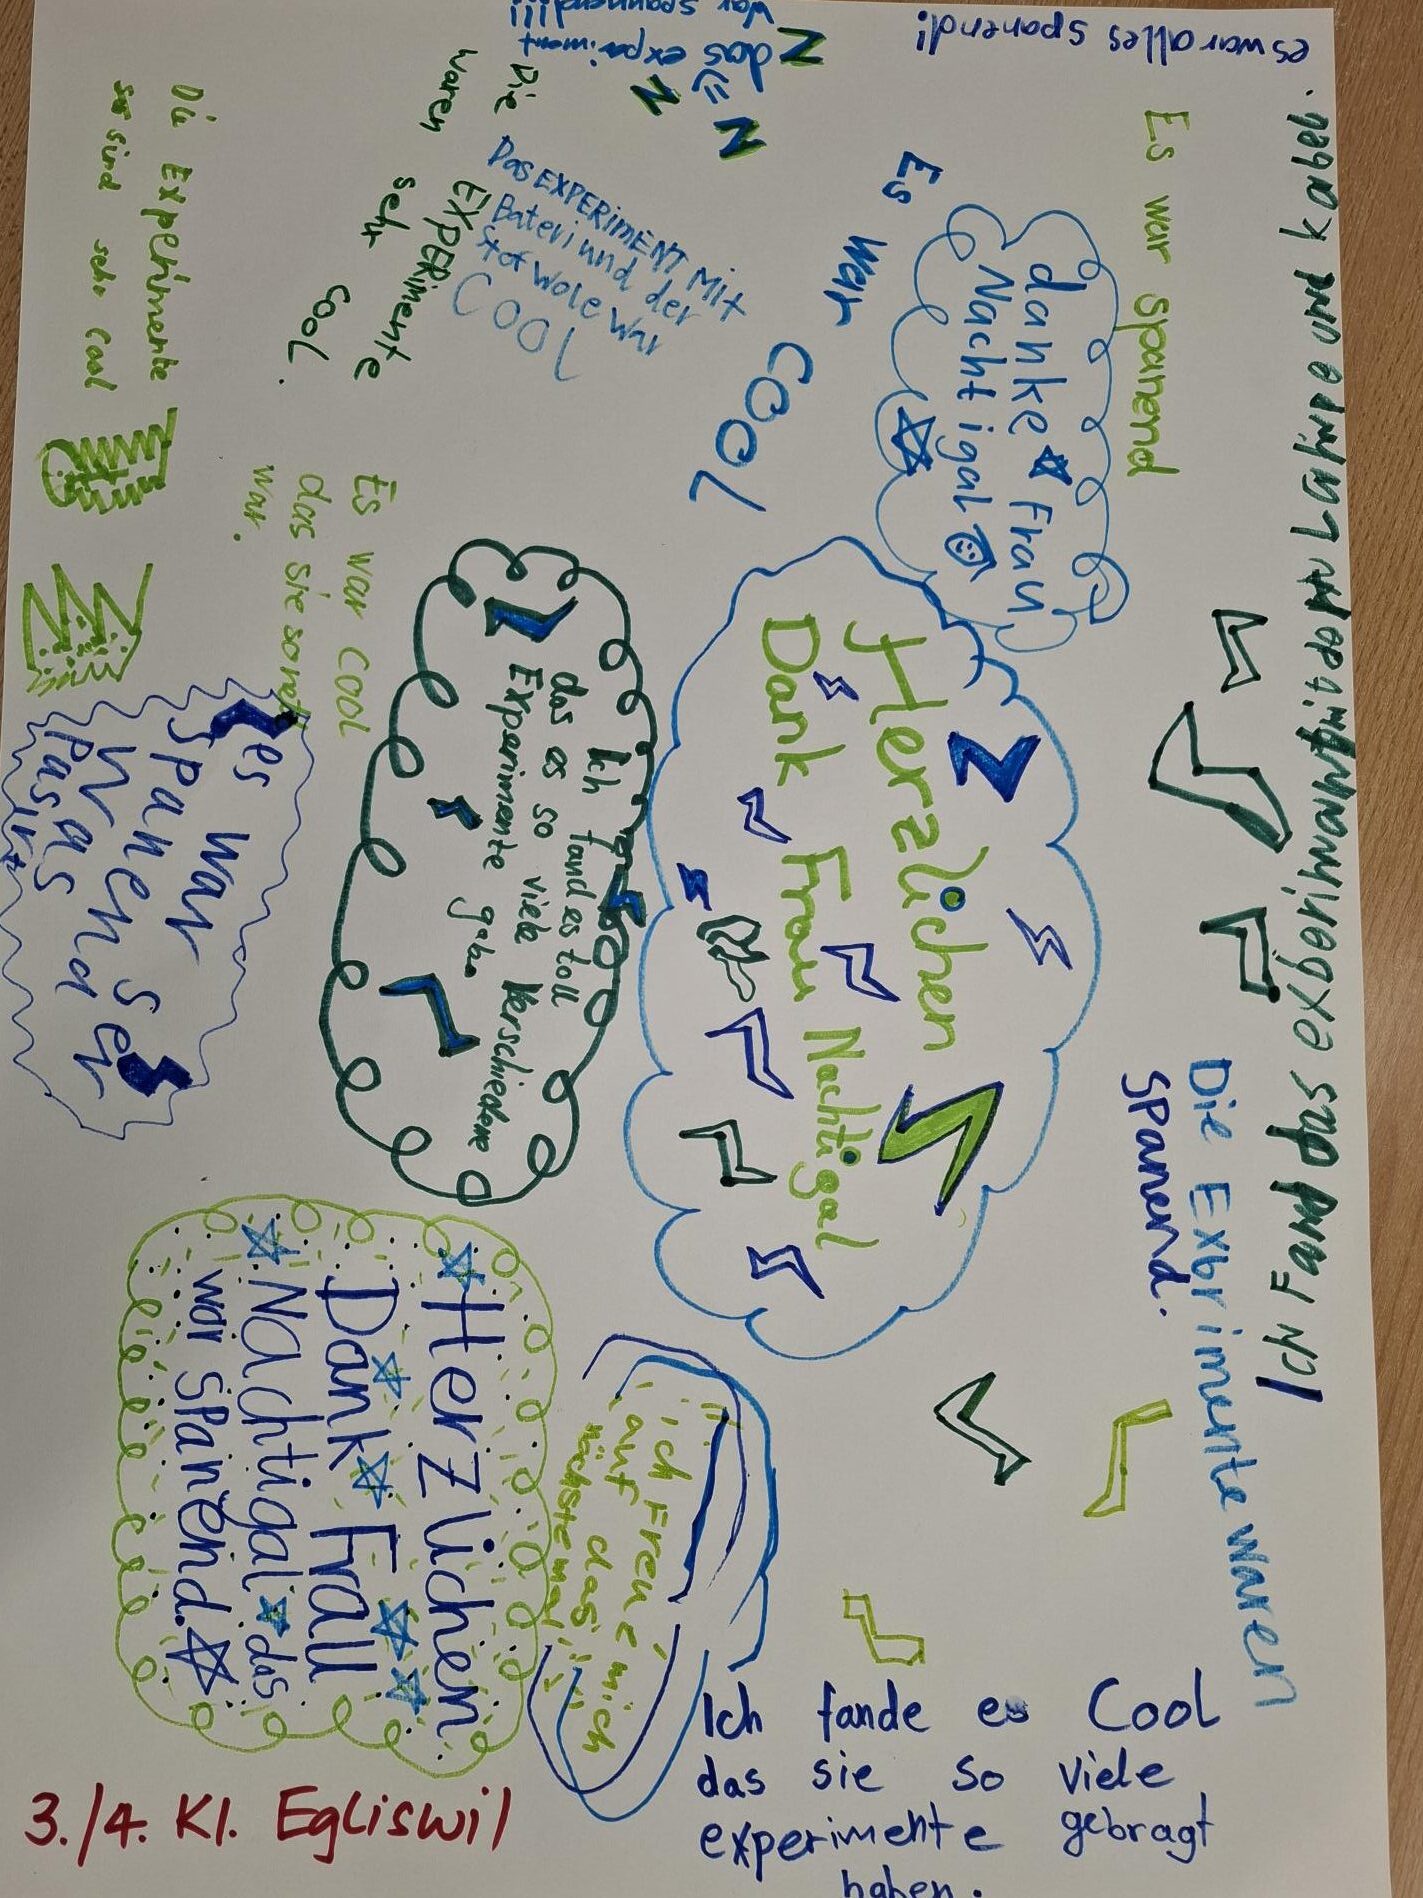 es war alles spanend!
das experiment
war spannend!!!
Es war spanend
danke Frau
Nachtigal
Es war
COOL
Das EXPERIMENT Mit
Bateri und der
Stof wole war
COOL
Die EXPERimente
waren sehr
COOL.
Die Experimente
sind sehr cool
Es war COOL
das sie
war.
Herzlichen
Dank Frau Nachtigal
Ich fand es toll
das es so viele verschiedene
Experimente gab.
es war
spanend
Ich Fand das
Die Exbrimente waren
spanend.
Herzlichen
Dank Frau
Nachtigal das
war spanend.
ich Freue mich
auf das
nächste mal
Ich fande es Cool
das sie so viele
experimente gebragt
haben.
3./4. Kl. Egliswil